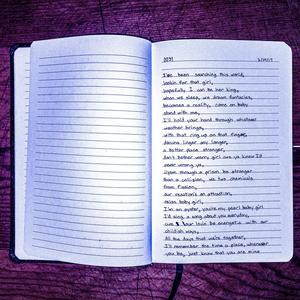 I've been searching this world,
lookin for that girl,
hopefully I can be her king,
when we sleep, we dream fantasies,
becomes a reality, come on baby
stand with me,
I'll hold your hand through whatever
weather brings,
with that ring up on that finger,
dancing linger my longer,
a better place stronger,
don't bother worry girl are ya know I'd
never wrong ya,
than a collision, we two chemicals
from fission,
our reaction's an attraction,
asian baby girl,
I'm an oyster, you're my pearl baby girl
I'd sing a song about you everyday,
our love be energetic with our
childish ways,
All the days that we're together,
I'll remember the time & place, wherever
you be, just know that you are mine